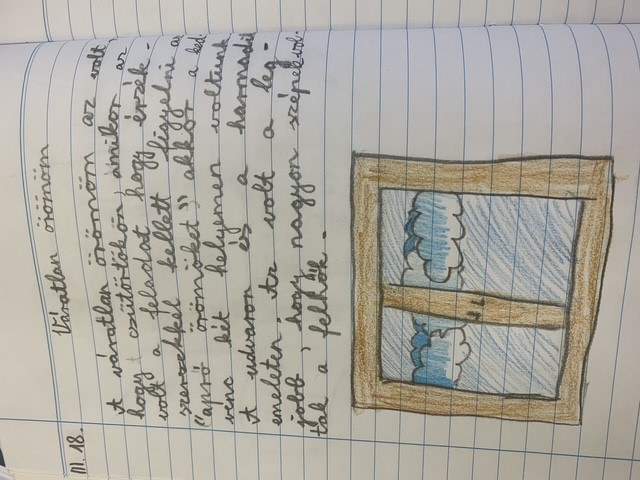 III. 18.
Váratlan örömöm
A váratlan örömöm az volt,
hogy csütörtökön, amikor az
volt a feladat hogy érzék-
szervekkel kellett figyelni az
"apró örömöket" akkor a ked-
venc két helyemen voltunk
A udvaron és a harmadik
emeleten. Az volt a leg-
jobb, hogy nagyon szépek vol-
tak a felhők.